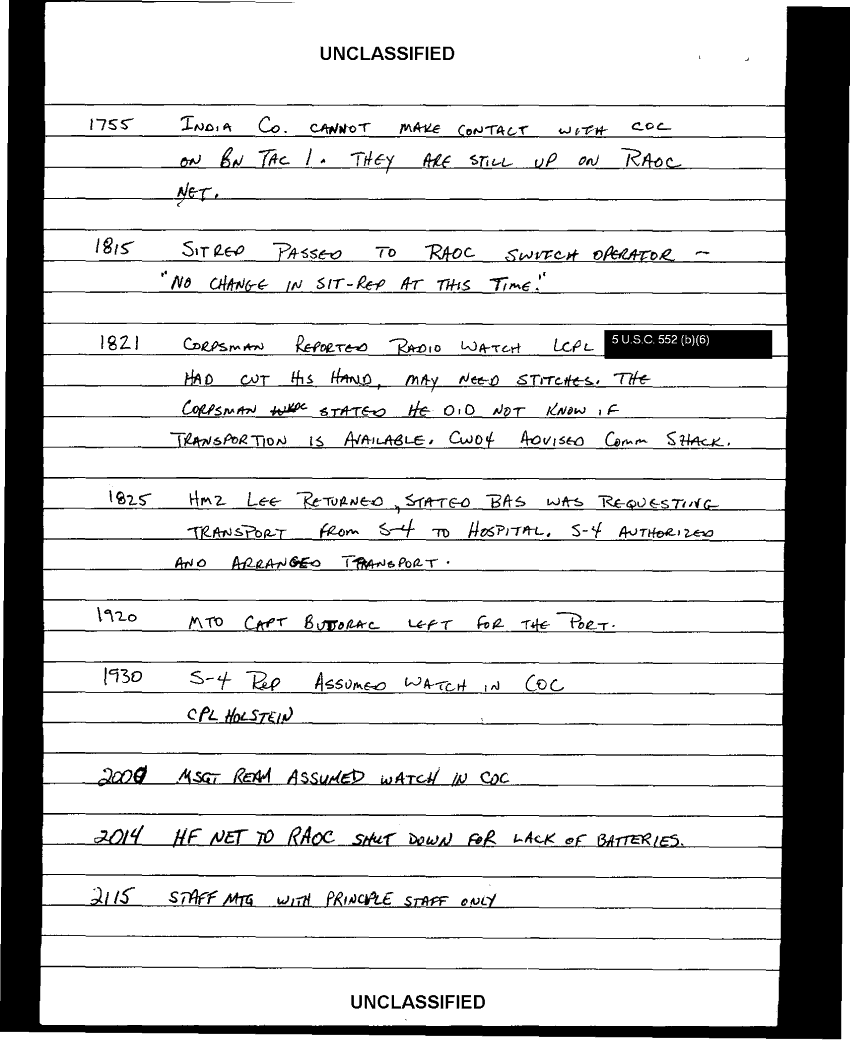 UNCLASSIFIED
1755 INDIA Co. CANNOT MAKE CONTACT WITH COC
ON BN TAC 1. THEY ARE STILL UP ON RAOC
NET.
1815 SITREP PASSED TO RAOC SWITCH OPERATOR -
"NO CHANGE IN SIT-REP AT THIS TIME."
1821 CORPSMAN REPORTED RADIO WATCH LCPL 5 U.S.C. 552 (b)(6)
HAD CUT HIS HAND, MAY NEED STITCHES. THE
CORPSMAN STATED HE DID NOT KNOW IF
TRANSPORTION IS AVAILABLE. CWO4 ADVISED Comm SHACK.
1825 HM2 LEE RETURNED, STATED BAS WAS REQUESTING
TRANSPORT FROM S-4 TO HOSPITAL. S-4 AUTHORIZED
AND ARRANGED TRANSPORT.
1920 MTO CAPT BUTORAC LEFT FOR THE PORT.
1930 S-4 REP ASSUMED WATCH IN COC
CPL HOLSTEIN
2000 MSGT REAM ASSUMED WATCH IN COC
2014 HF NET TO RAOC SHUT DOWN FOR LACK OF BATTERIES.
2115 STAFF MTG WITH PRINCIPLE STAFF ONLY
UNCLASSIFIED